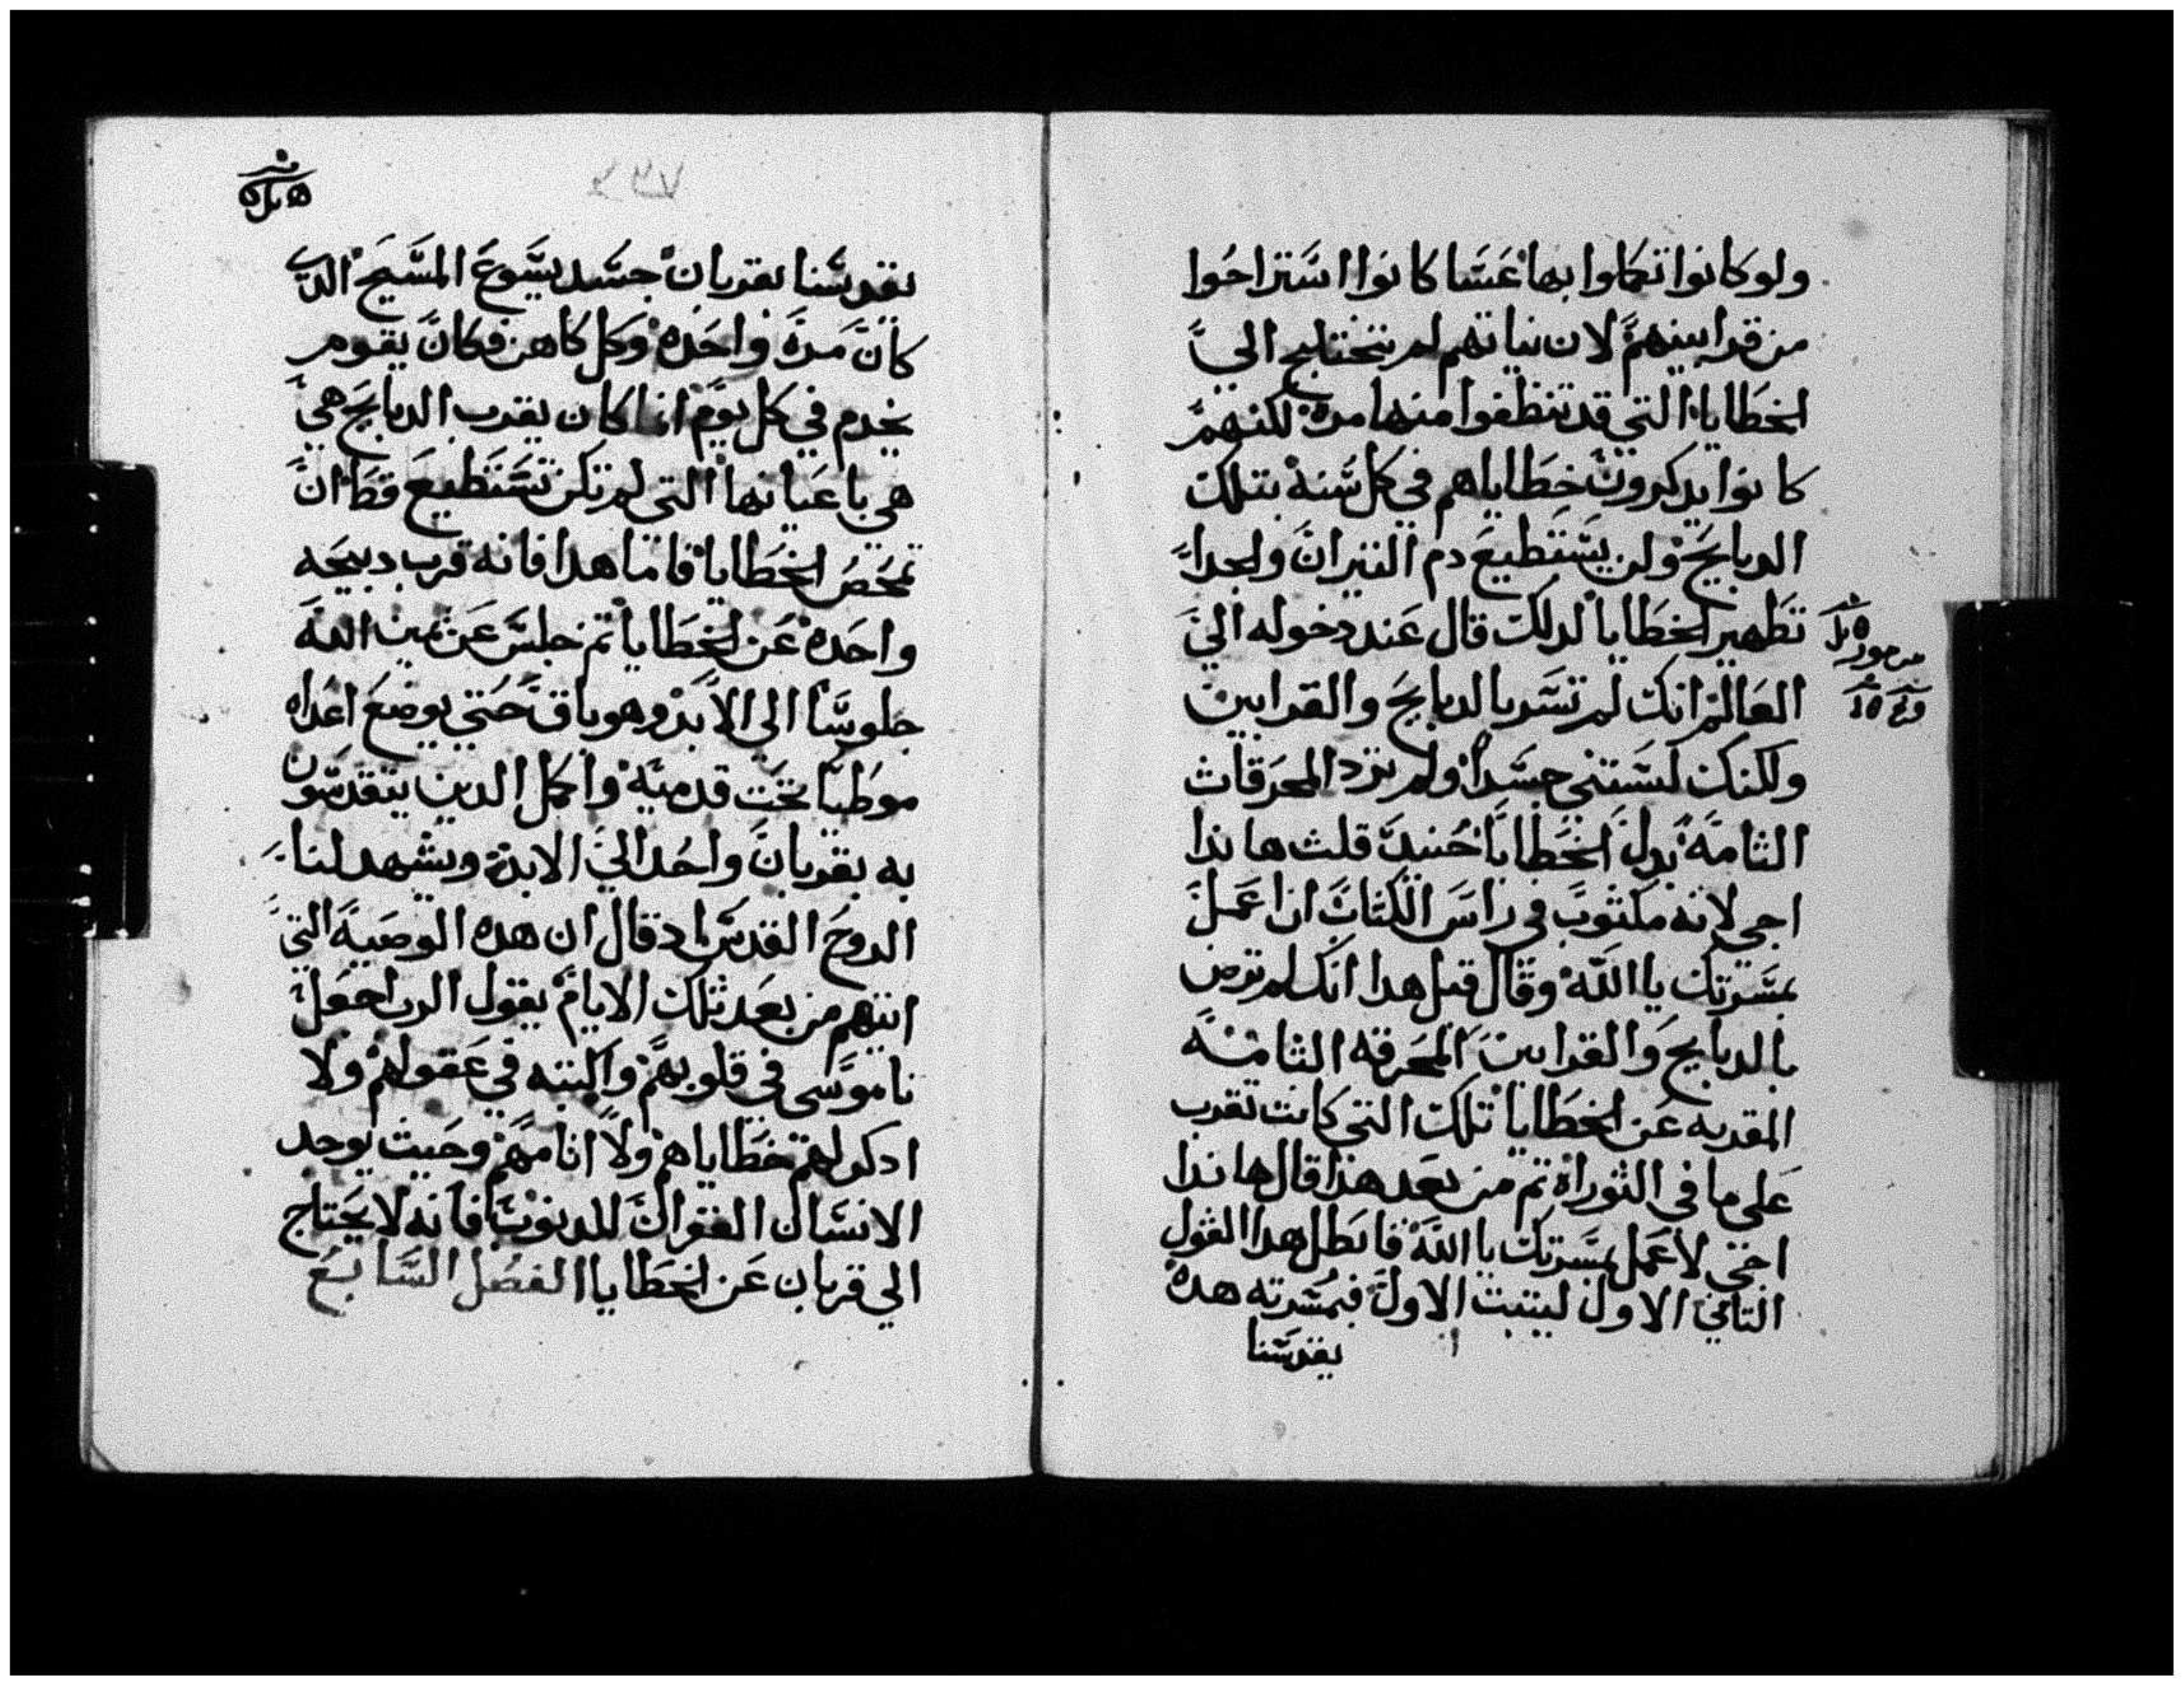 ولو كانوا تكملوا بها عسا كانوا استراحوا
من قرابينهم لان نياتهم لم تحتاج الي
الخطايا التي قد تنظفوا منها مرة لكنهم
كانوا يدكرون خطاياهم في كل سنة بتلك
الدبايح ولن يستطيع دم التيران والجدا
تطهير الخطايا لدلك قال عند دخوله الي
العالم انك لم تسر بالدبايح والقرابين
ولكنك لبستني جسدا ولم ترد المحرقات
التامة بدل الخطايا حنيد قلت هاندا
اجي لانه مكتوب في راس الكتاب ان اعمل
بمسرتك يا الله وقال قبل هدا انك لم ترض
بالدبايح والقرابين المحرقه التامة
المقدبه عن الخطايا تلك التي كانت تقرب
على ما في التوراة تم من بعد هدا قال هاندا
اجي لاعمل بمسرتك يا الله فابطل هدا القول
التاني الاول ليتبت الاول فبمسرته هده
يقدسنا
مزمور
٢٣٧
يقدسنا بقربان جسد يسوع المسيح الدي
كان مرة واحدة وكل كاهن فكان يقوم
يخدم في كل يوم انما كان يقرب الدبايح هي
هي باعيانها التي لم تكن تستطيع قط ان
تمحص الخطايا فاما هدا فانه قرب دبيحه
واحدة عن الخطايا تم جلس عن يمين الله
جلوسا الي الابد وهو باق حتي يوضع اعداه
موطيا تحت قدميه واكمل الدين يتقدسون
به بقربان واحد الي الابد ويشهد لنا
الروح القدس اد قال ان هده الوصية التي
اتيهم من بعد تلك الايام يقول الرب اجعل
ناموسي في قلوبهم واكتبه في عقولهم ولا
ادكر لهم خطاياهم ولا اتامهم وحيت يوجد
الانسان الغفران للدنوب فانه لا يحتاج
الي قربان عن الخطايا الفصل السابع